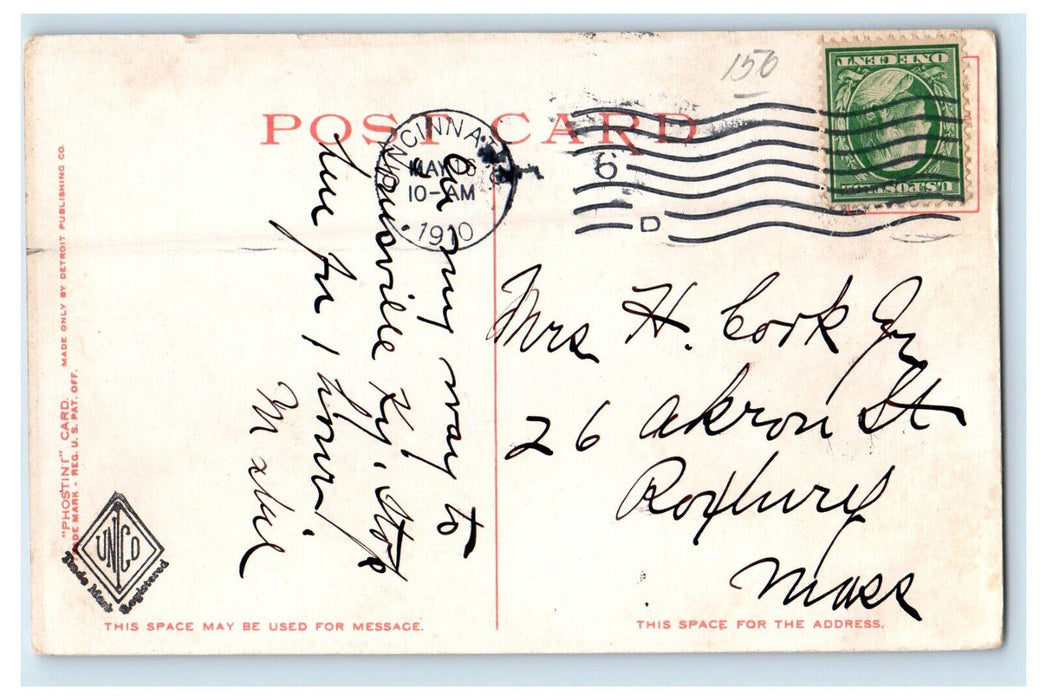 156
POST CARD
CINCINNATI, O.
MAY 16
10-AM
1910
6
D
ONE CENT
U.S. POSTAGE
On my way to
Louisville Ky. Stop
here for 1 hour
M
Mrs H. Cook Jr
26 Akron St
Roxbury
Mass
"PHOSTINT" CARD. MADE ONLY BY DETROIT PUBLISHING CO.
TRADE MARK - REG. U. S. PAT. OFF.
UNICO
Trade Mark Registered
THIS SPACE MAY BE USED FOR MESSAGE.
THIS SPACE FOR THE ADDRESS.